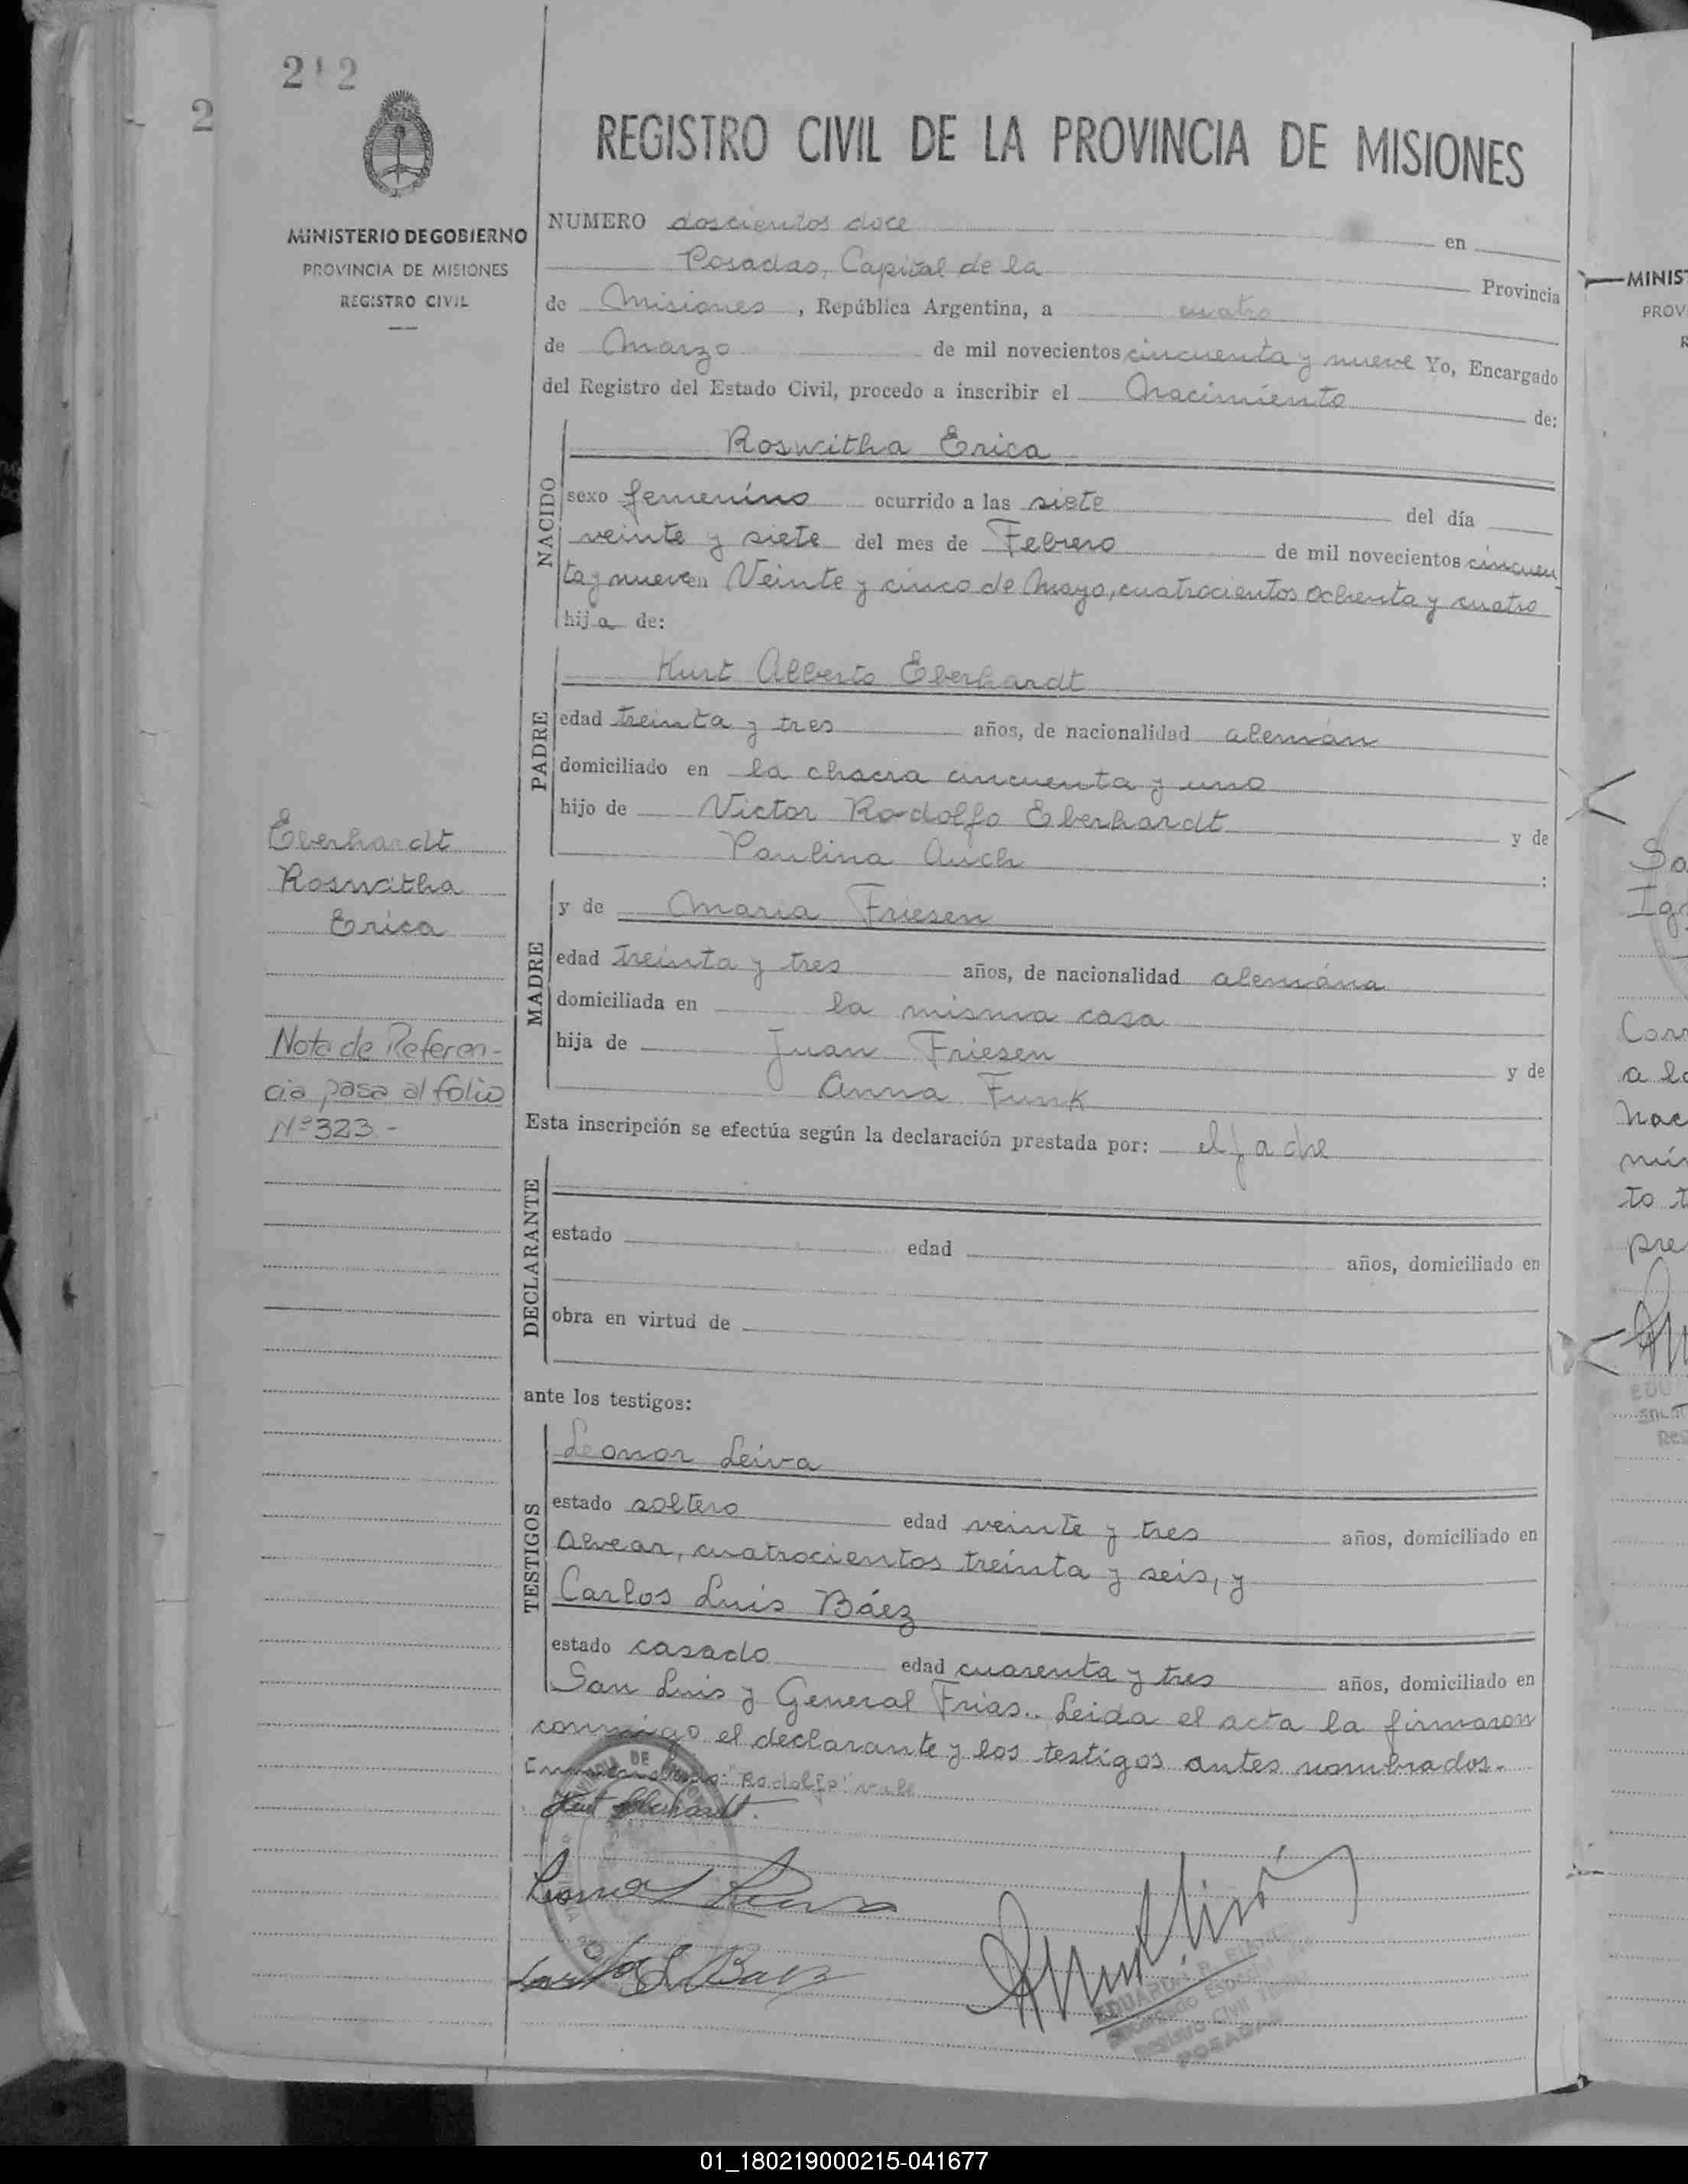 212
2
MINISTERIO DE GOBIERNO
PROVINCIA DE MISIONES
REGISTRO CIVIL
REGISTRO CIVIL DE LA PROVINCIA DE MISIONES
NUMERO doscientos doce en
Posadas, Capital de la Provincia
de Misiones, República Argentina, a cuatro
de Marzo de mil novecientos cincuenta y nueve Yo, Encargado
del Registro del Estado Civil, procedo a inscribir el Nacimiento de:
NACIDO
Roswitha Erica
sexo femenino ocurrido a las siete del día
veinte y siete del mes de Febrero de mil novecientos cincuen
ta y nueve en Veinte y cinco de Mayo, cuatrocientos ochenta y cuatro
hija de:
PADRE
Kurt Alberto Eberhardt
edad treinta y tres años, de nacionalidad alemán
domiciliado en la chacra cincuenta y uno
hijo de Victor Rodolfo Eberhardt y de
Paulina Auch :
MADRE
y de Maria Friesen
edad treinta y tres años, de nacionalidad alemána
domiciliada en la misma casa
hija de Juan Friesen y de
Anna Funk
Esta inscripción se efectúa según la declaración prestada por: el padre
DECLARANTE
estado edad años, domiciliado en
obra en virtud de
ante los testigos:
TESTIGOS
Leonor Leiva
estado soltero edad veinte y tres años, domiciliado en
Alvear, cuatrocientos treinta y seis, y
Carlos Luis Báez
estado casado edad cuarenta y tres años, domiciliado en
San Luis y General Frias.. Leida el acta la firmaron
conmigo el declarante y los testigos antes nombrados.
"Rodolfo" vale
Kurt Eberhardt.
Leonor Leiva
Carlos L. Baez
EDUARDO R.
Encargado
Registro Civil
POSADAS
Eberhardt
Roswitha
Erica
Nota de Referen-
cia pasa al folio
Nº 323.-
MINIST
PROV
R
So
Ig
Corr
a la
nac
mi
to t
pre
EDU
01_180219000215-041677